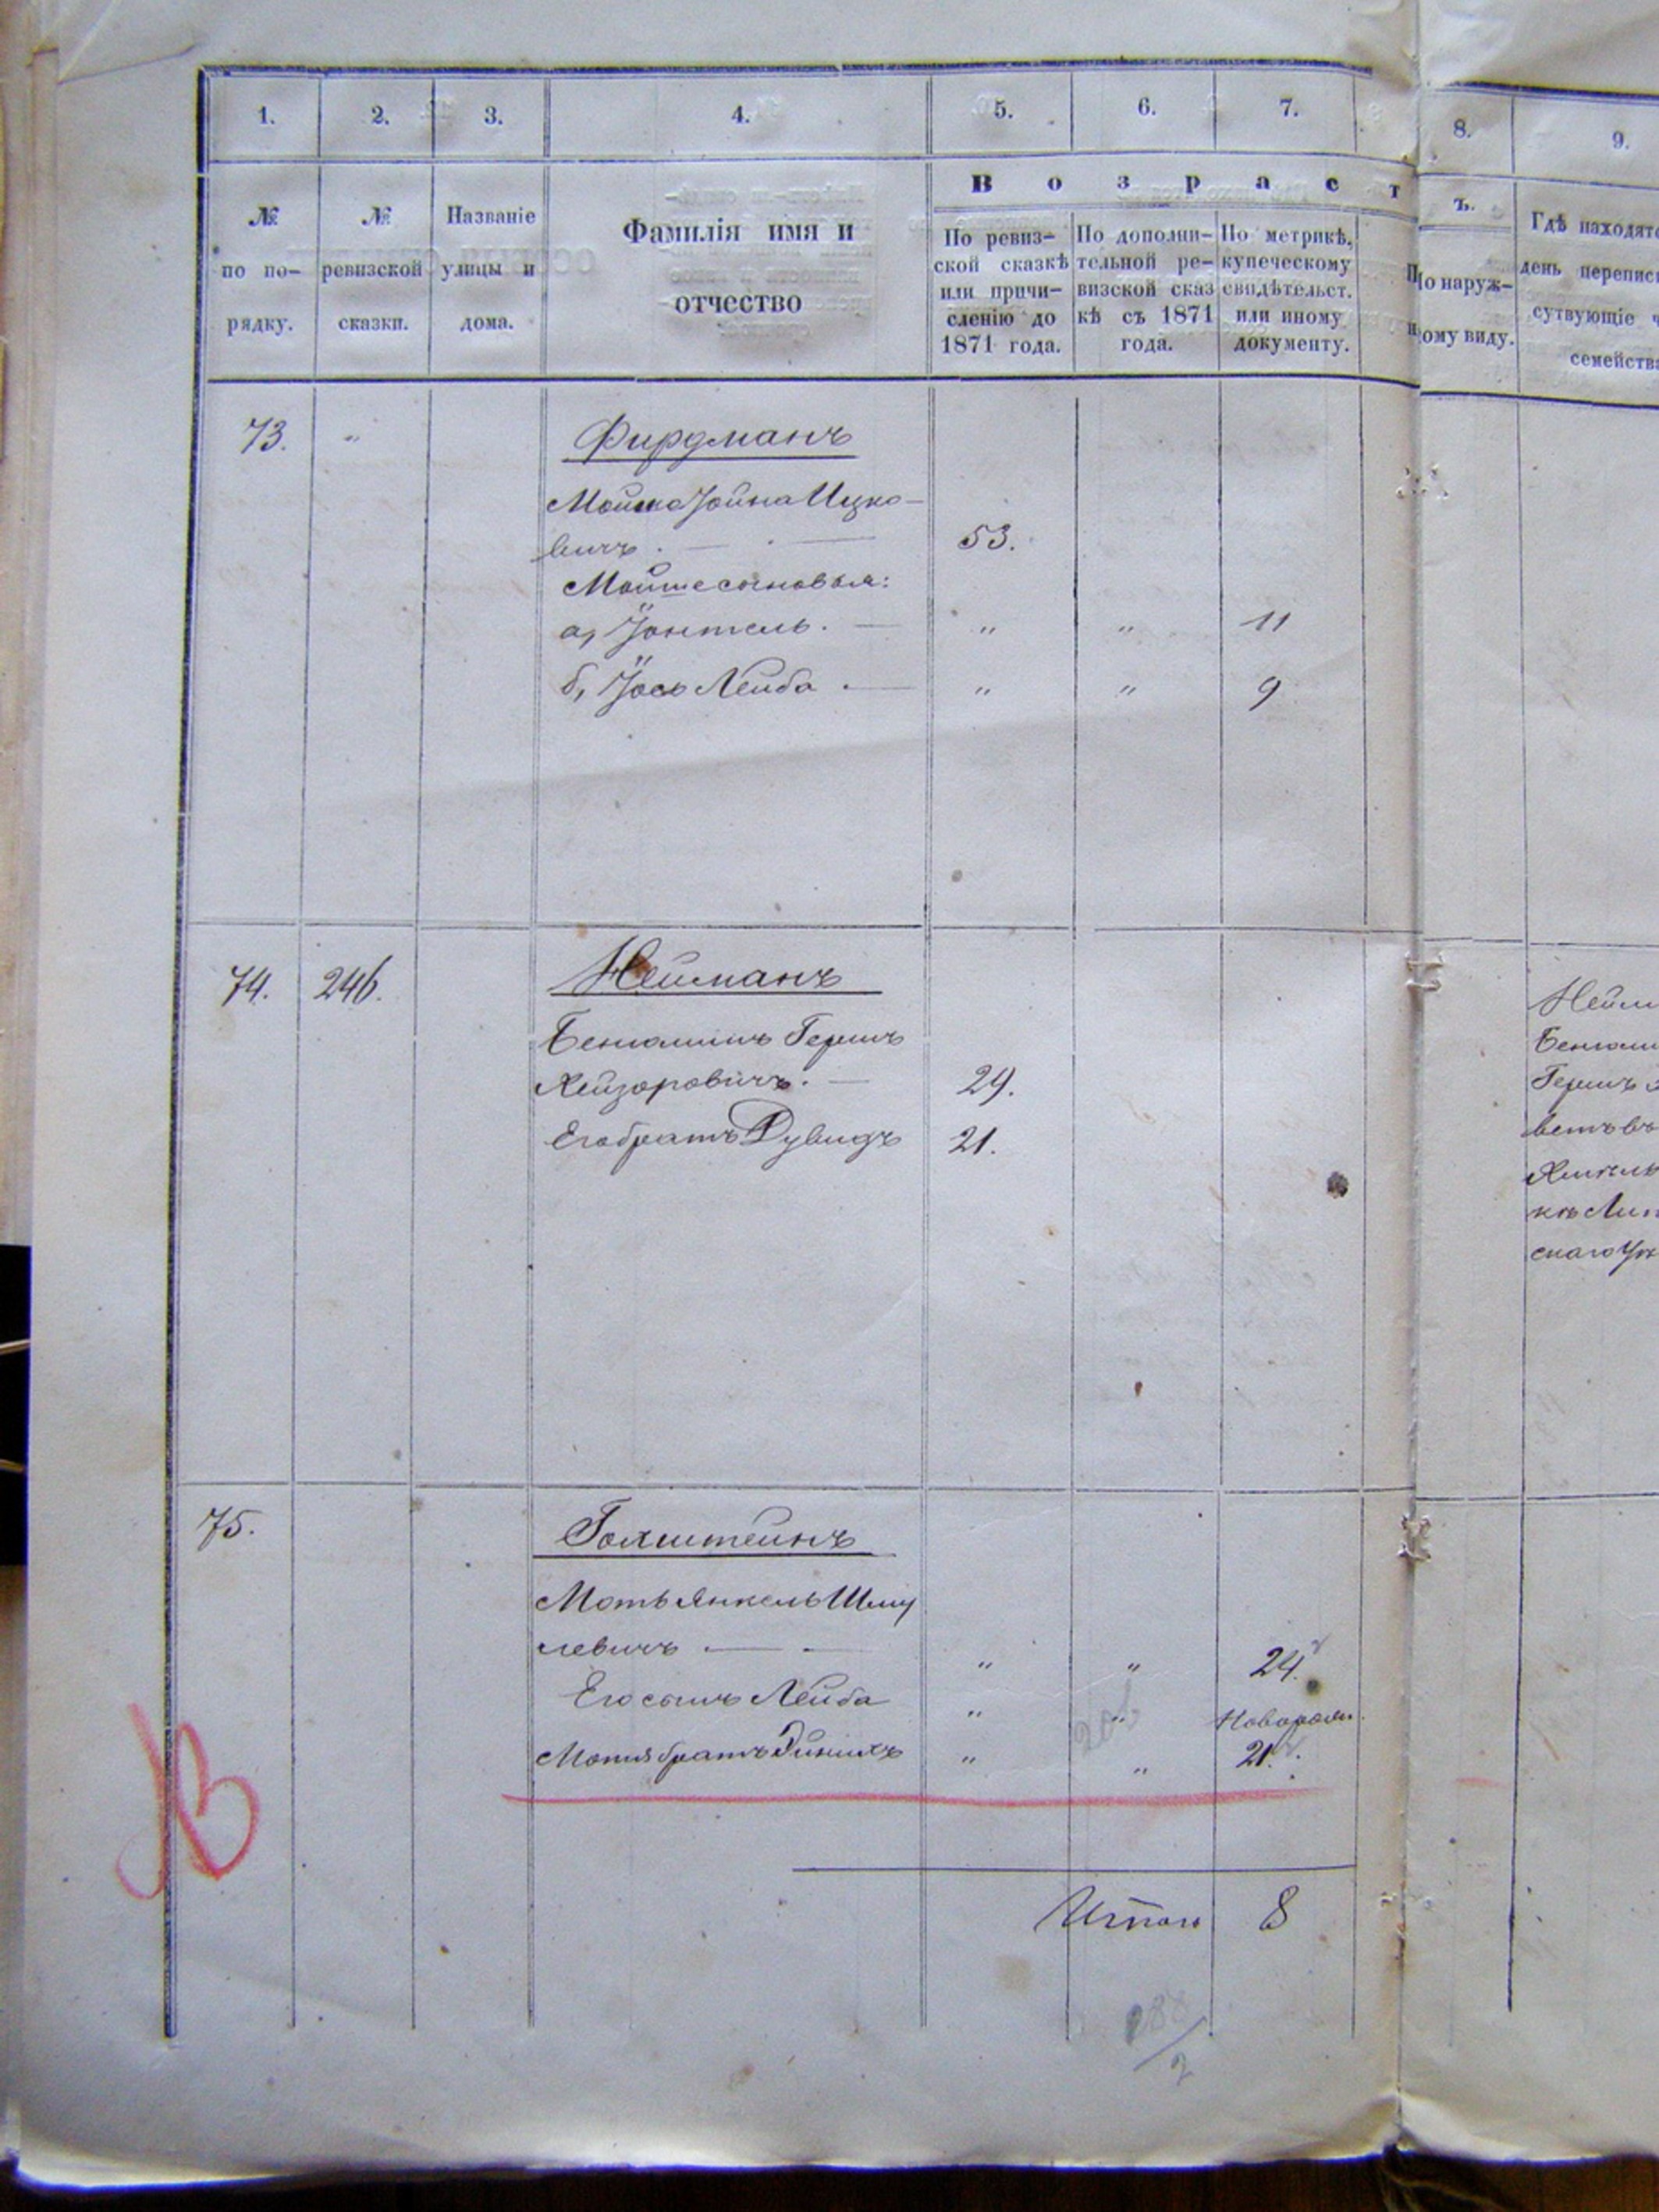 1. 2. 3. 4. 5. 6. 7. 8. 9.
В о з р а с т ъ.
№ по по-рядку.
№ ревизской сказки.
Названіе улицы и дома.
Фамилія имя и отчество
По ревиз-ской сказкѣ или причи-сленію до 1871 года.
По дополни-тельной ре-визской сказ кѣ съ 1871 года.
По метрикѣ, купеческому свидѣтельст. или иному документу.
По наруж-ному виду.
Гдѣ находятс
день переписи
сутвующіе ч
семейства
73. " Фирдманъ
Мошко Іойна Ицко-
вичъ. — 53.
Мошке сыновья:
а, Іонтель. — " " 11
б, Іось Лейба. — " " 9
74. 246. Нейманъ Нейм
Беніоминъ Гершъ Беніоми
Лейзоровичъ. — 29. Гершъ
Его братъ Дувидъ 21. ветъ въ
скаго
75. Голштейнъ
Моть Янкель Шму
левичъ — " " 24.
Его сынъ Лейба " " Новорож.
Мотя братъ " " 21.
Итого 8
В
188/2